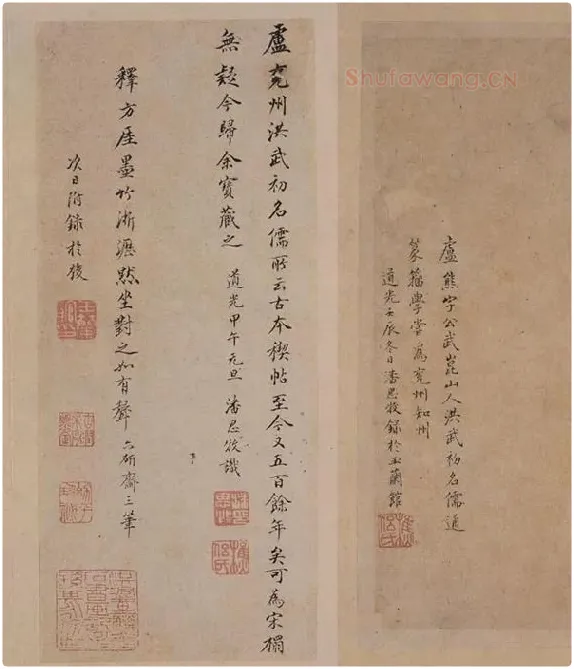 Shufawang.CN
盧熊字公武崑山人洪武初名儒通
篆籀學嘗為兗州知州
道光壬辰冬日潘思牧錄於玉蘭館
盧兗州洪武初名儒所云古本禊帖至今又五百餘年矣可為宋榻
無疑今歸余寶藏之 道光甲午元旦 潘思牧識
釋方厓墨竹淅瀝默坐對之如有聲 六研齋三筆
次日附錄於後